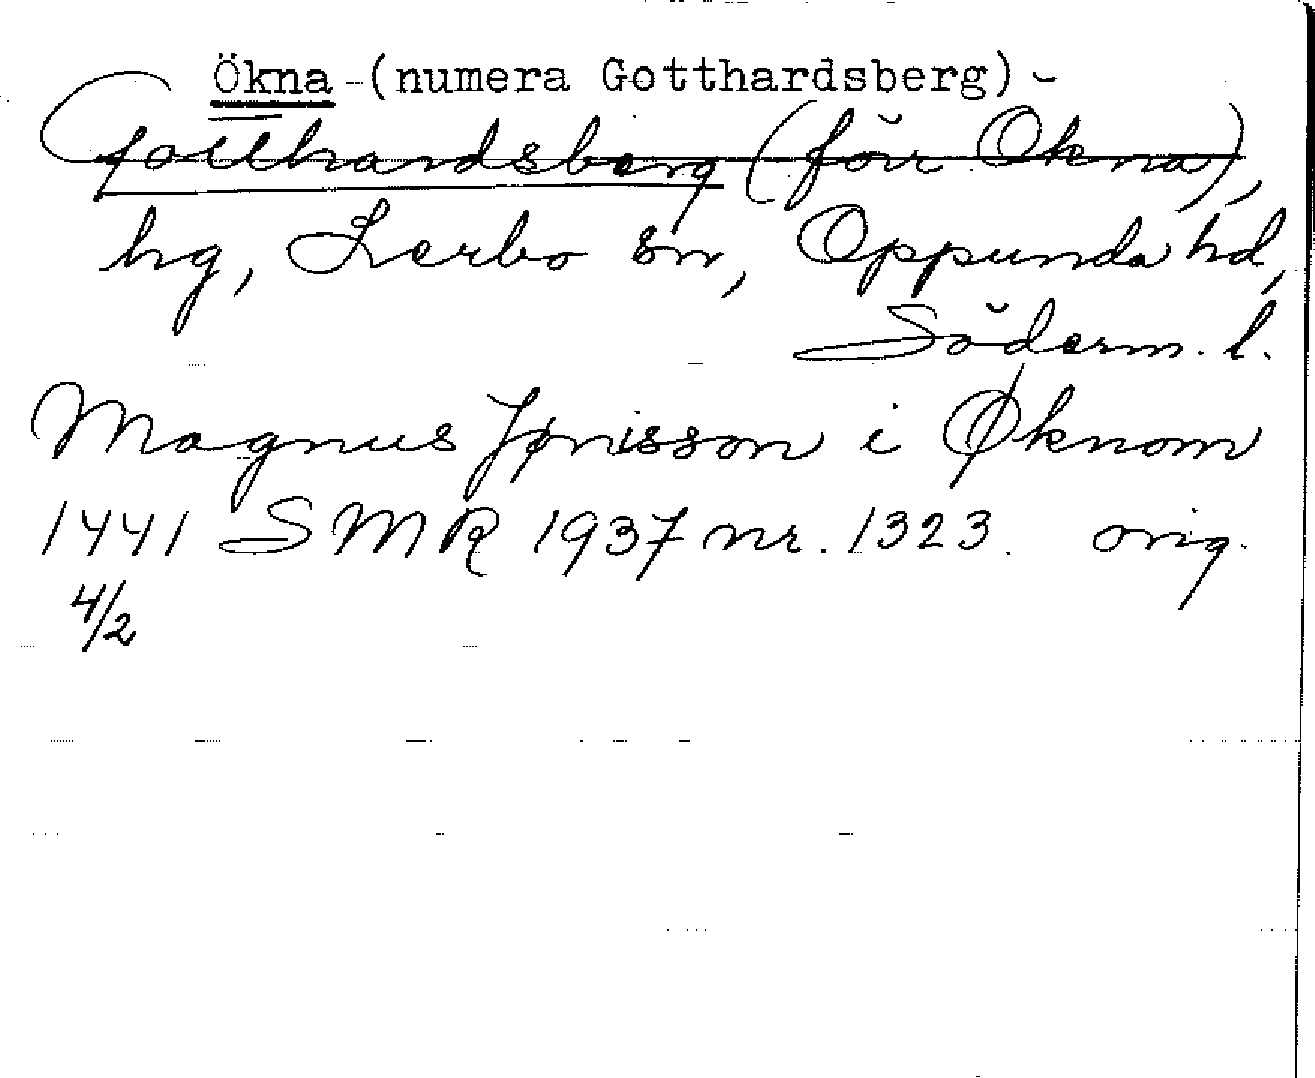 Ökna - (numera Gotthardsberg) -
Gotthardsberg (förr Ökna),
hg, Lerbo sn, Oppunda hd,
Söderm. l.
Magnus Jønisson i Øknom
1441 SMR 1937 nr. 1323. orig.
4/2